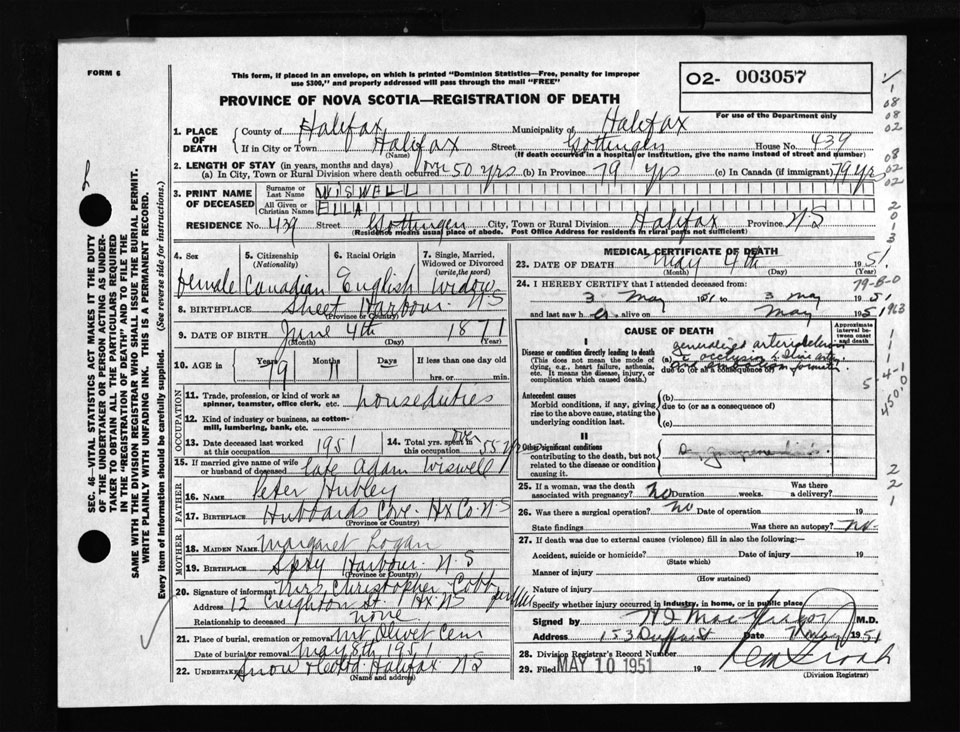 FORM 6
This form, if placed in an envelope, on which is printed "Dominion Statistics—Free, penalty for improper
use $300," and properly addressed will pass through the mail "FREE"
PROVINCE OF NOVA SCOTIA—REGISTRATION OF DEATH
O2- 003057
For use of Department only
1. PLACE OF DEATH { County of Halifax Municipality of Halifax
If in City or Town Halifax Street Gottingen House No. 439
(Name) (If death occurred in a hospital or institution, give the name instead of street and number)
2. LENGTH OF STAY (in years, months and days)
(a) In City, Town or Rural Division where death occurred over 50 yrs (b) In Province 79 yrs (c) In Canada (if immigrant) 79 yrs
3. PRINT NAME OF DECEASED { Surname or Last Name WISWELL
All Given or Christian Names ELLA
RESIDENCE No. 439 Street Gottingen City, Town or Rural Division Halifax Province NS
(Residence means usual place of abode. Post Office Address for residents in rural parts not sufficient)
4. Sex 5. Citizenship (Nationality) 6. Racial Origin 7. Single, Married, Widowed or Divorced (write the word)
female Canadian English Widow
8. BIRTHPLACE Sheet Harbour NS
(Province or Country)
9. DATE OF BIRTH June 4th 1871
(Month) (Day) (Year)
10. AGE in Years Months Days If less than one day old
79 11 hrs. or min.
OCCUPATION
11. Trade, profession, or kind of work as spinner, teamster, office clerk, etc. houseduties
12. Kind of industry or business, as cotton-mill, lumbering, bank, etc.
13. Date deceased last worked at this occupation 1951 14. Total yrs. spent in this occupation over 55 yrs
15. If married give name of wife or husband of deceased late Adam Wiswell
FATHER
16. NAME Peter Hubley
17. BIRTHPLACE Hubbards Cove Hx Co. NS
(Province or Country)
MOTHER
18. MAIDEN NAME Margaret Logan
19. BIRTHPLACE Spry Harbour N S
(Province or Country)
20. Signature of informant Mrs. Christopher Cobb
Address 12 Creighton St Hx. NS
Relationship to deceased none
21. Place of burial, cremation or removal Mt Olivet Cem
Date of burial or removal May 8th 1951
22. Undertaker Snow & Co Ltd Halifax NS
(Name and address)
MEDICAL CERTIFICATE OF DEATH
23. DATE OF DEATH May 4th 1951
(Month) (Day) (Year)
24. I HEREBY CERTIFY that I attended deceased from:
3 May 1951 to 3 May 1951
and last saw h alive on May 1951
CAUSE OF DEATH
Approximate interval between onset and death
I
Disease or condition directly leading to death
(This does not mean the mode of dying, e.g., heart failure, asthenia, etc. It means the disease, injury, or complication which caused death.)
(a) generalized arteriosclerosis
occlusion
due to (or as a consequence of)
Antecedent causes
Morbid conditions, if any, giving rise to the above cause, stating the underlying condition last.
(b)
due to (or as a consequence of)
(c)
II
Other significant conditions
contributing to the death, but not related to the disease or condition causing it
25. If a woman, was the death associated with pregnancy? No Duration weeks. Was there a delivery?
26. Was there a surgical operation? No Date of operation 19
State findings Was there an autopsy? No
27. If death was due to external causes (violence) fill in also the following:—
Accident, suicide or homicide? Date of injury 19
(State which)
Manner of injury
(How sustained)
Nature of injury
Specify whether injury occurred in industry, in home, or in public place
Signed by M.D.
Address 153 Date 7 May 1951
28. Division Registrar's Record Number
29. Filed MAY 10 1951 19
(Division Registrar)
SEC. 46—VITAL STATISTICS ACT MAKES IT THE DUTY
OF THE UNDERTAKER OR PERSON ACTING AS UNDER-
TAKER TO OBTAIN ALL THE PARTICULARS REQUIRED
IN THE "REGISTRATION OF DEATH" AND TO FILE THE
SAME WITH THE DIVISION REGISTRAR WHO SHALL ISSUE THE BURIAL PERMIT.
WRITE PLAINLY WITH UNFADING INK. THIS IS A PERMANENT RECORD.
Every item of information should be carefully supplied. (See reverse side for instructions.)